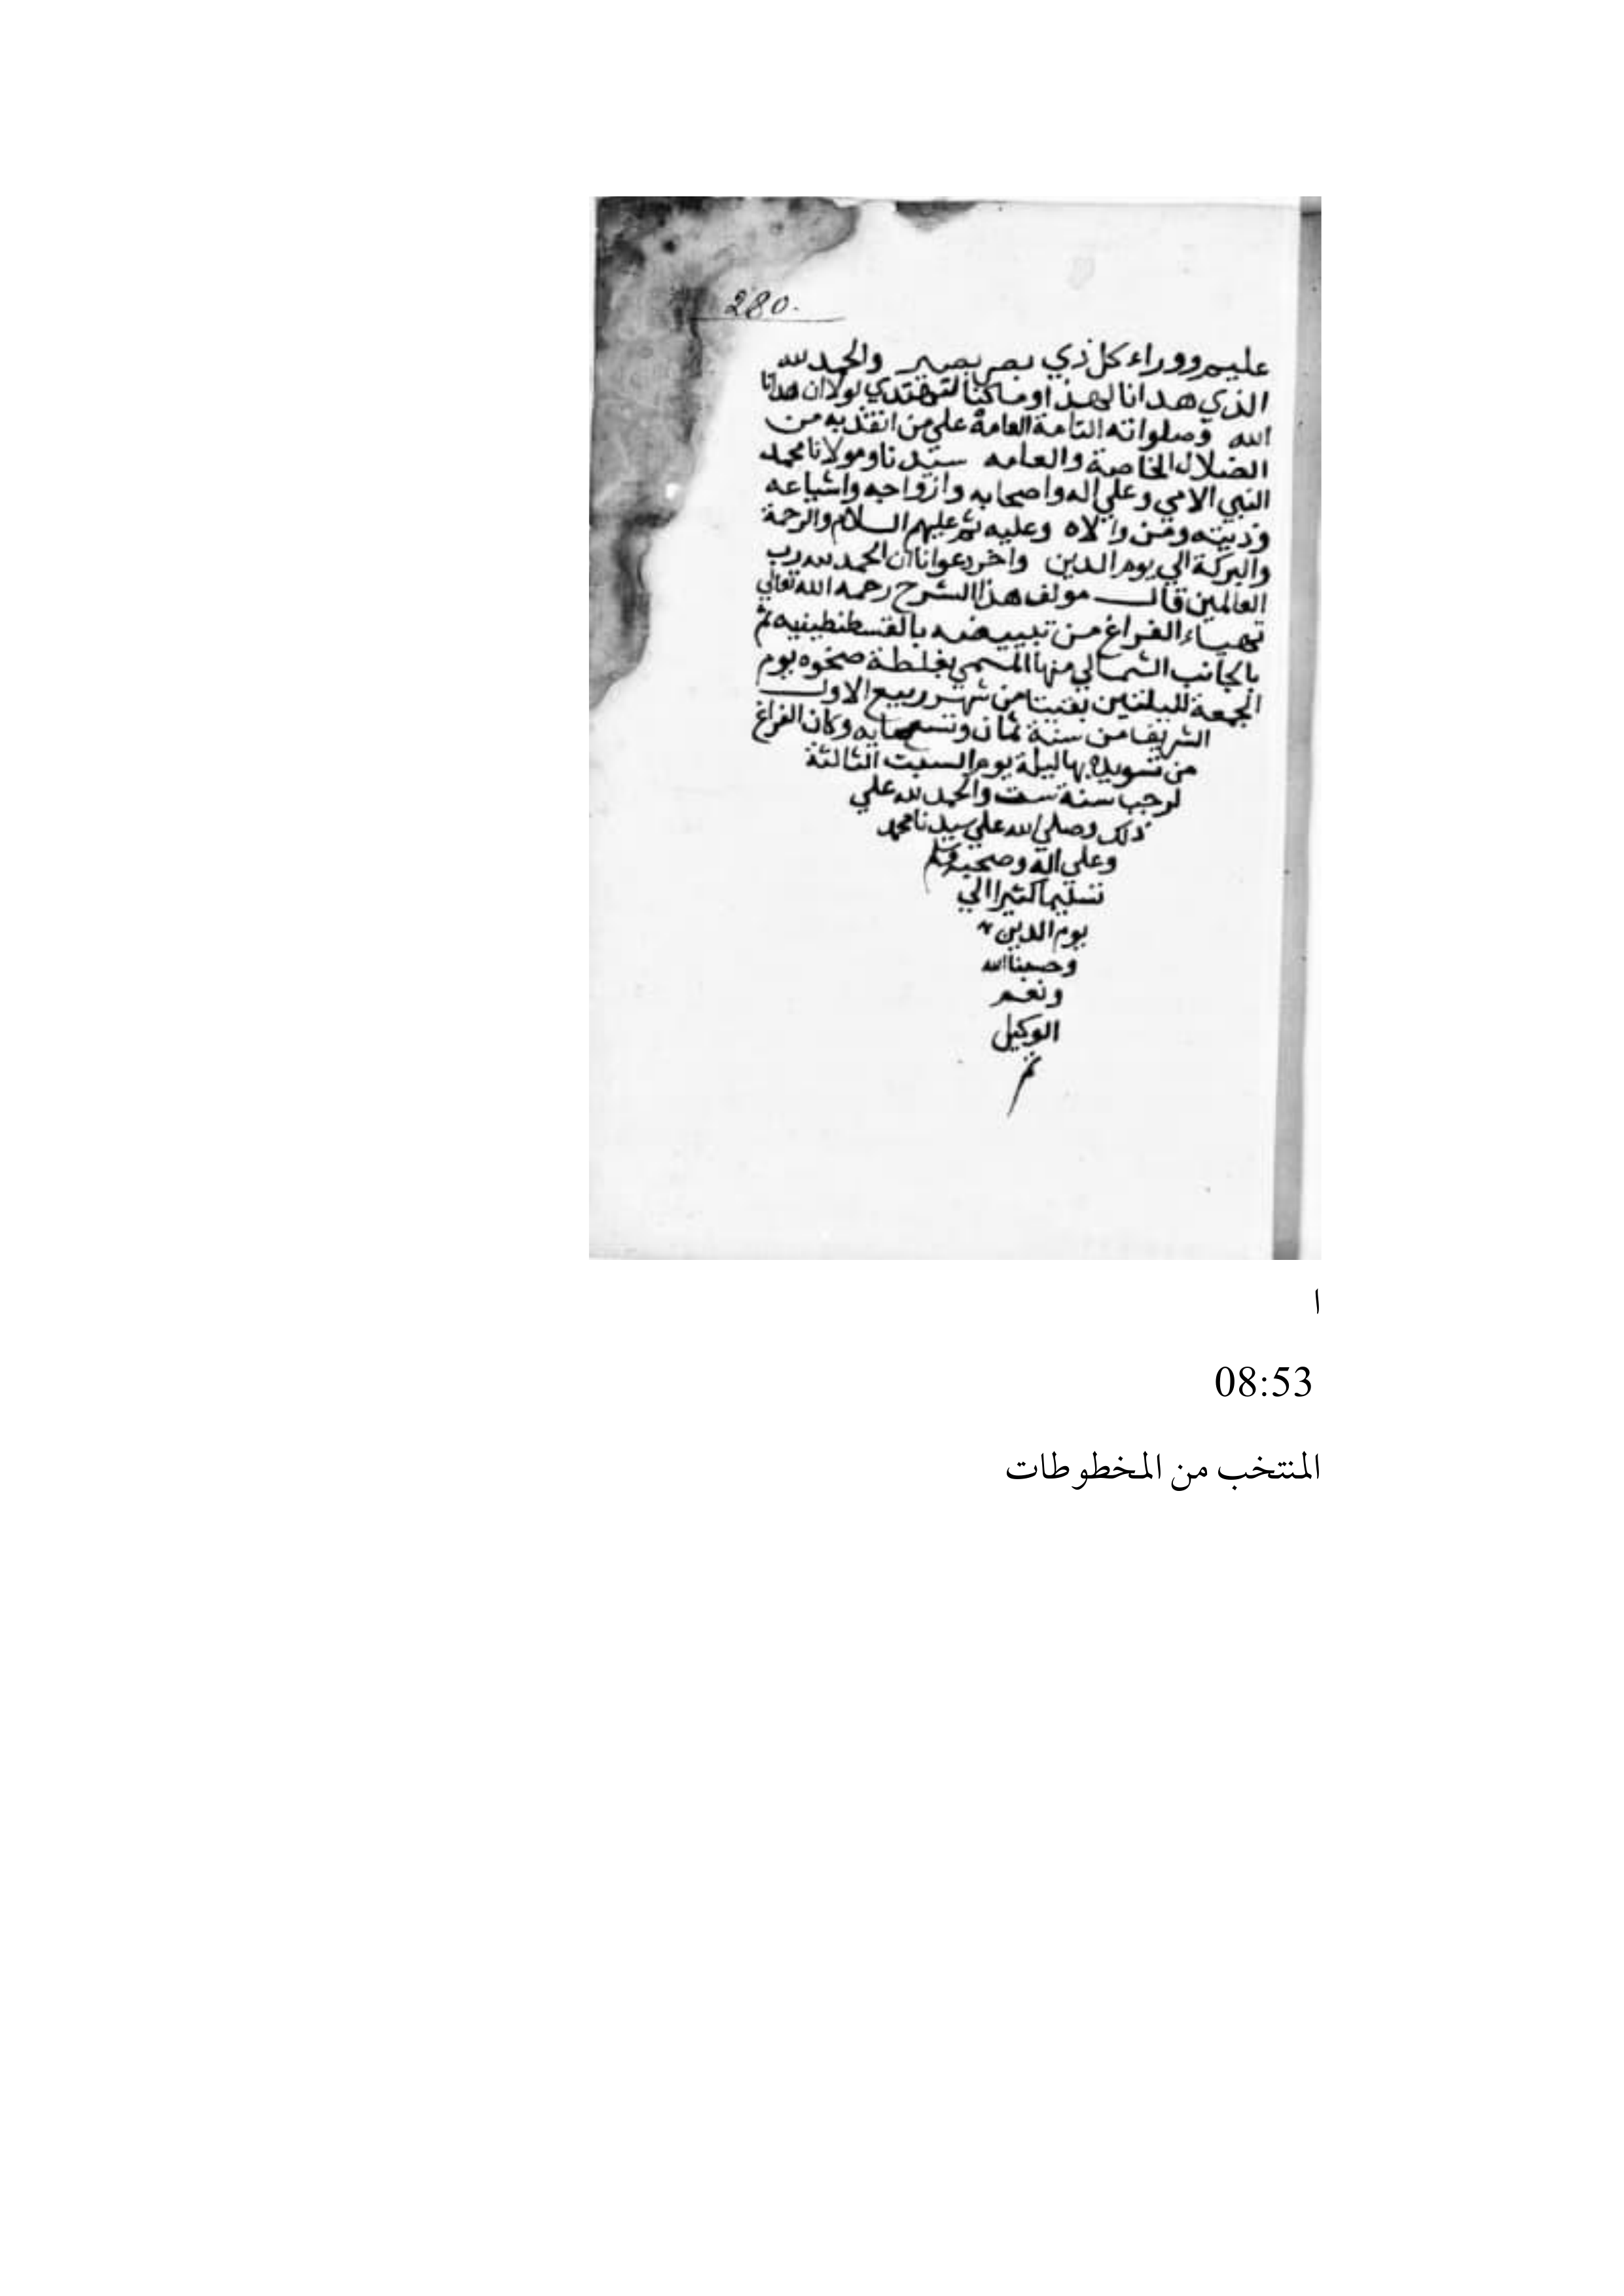 280.
عليم ووراء كل ذي بصر بصير والحمد لله
الذي هدانا لهذا وما كنا لنهتدي لولا ان هدانا
الله وصلواته التامة العامة على من انقذ به من
الضلال الخاصة والعامه سيدنا ومولانا محمد
النبي الامي وعلي اله واصحابه وازواجه واشياعه
وذريته ومن والاه وعليه ثم عليهم السلام والرحمة
والبركة الي يوم الدين واخر دعوانا ان الحمد لله رب
العالمين قال مولف هذا الشرح رحمه الله تعالي
تهياء الفراغ من تبييضه بالقسطنطينيه ثم
بالجانب الشمالي منها المسمي بغلطة ضحوه يوم
الجمعة لليلتين بقيتا من شهر ربيع الاول
الشريف من سنة ثمان وتسعمايه وكان الفراغ
من تسويده بها ليلة يوم السبت الثالثة
لرجب سنة ست والحمد لله علي
ذلك وصلي الله علي سيدنا محمد
وعلي اله وصحبه وسلم
تسليما كثيرا الي
يوم الدين
وحسبنا الله
ونعم
الوكيل
تم
ا
08:53
المنتخب من المخطوطات